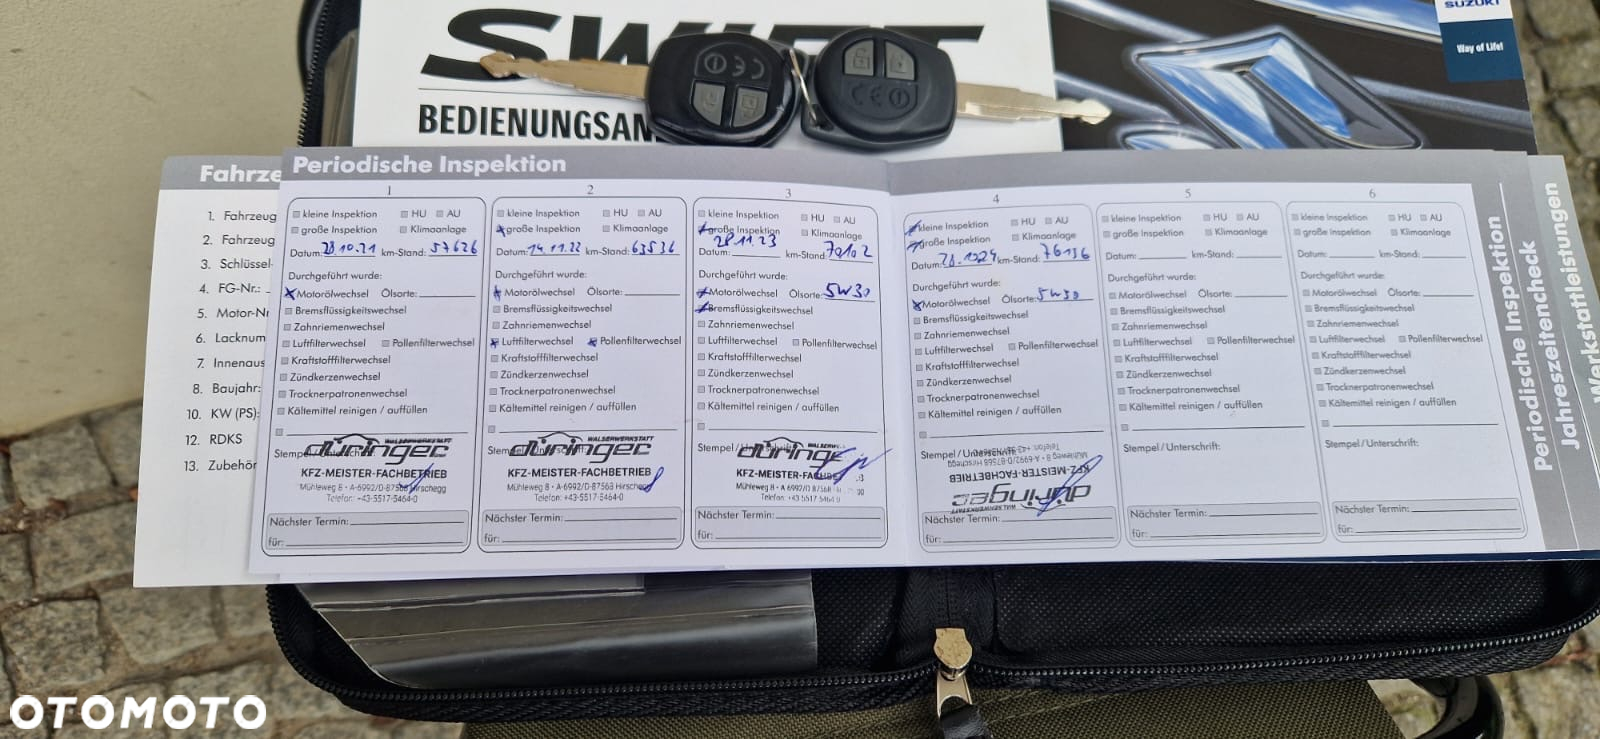 SWIFT
BEDIENUNGSAN
SUZUKI
Way of Life!
Fahrze
1. Fahrzeug
2. Fahrzeug
3. Schlüssel-
4. FG-Nr.:
5. Motor-Nr
6. Lacknum
7. Innenaus
8. Baujahr:
10. KW (PS):
12. RDKS
13. Zubehör
Periodische Inspektion
1
kleine Inspektion HU AU
große Inspektion Klimaanlage
Datum: 28.10.21 km-Stand: 57626
Durchgeführt wurde:
Motorölwechsel Ölsorte:
Bremsflüssigkeitswechsel
Zahnriemenwechsel
Luftfilterwechsel Pollenfilterwechsel
Kraftstofffilterwechsel
Zündkerzenwechsel
Trocknerpatronenwechsel
Kältemittel reinigen / auffüllen
Stempel/Unterschrift:
WALSERWERKSTATT
düringer
KFZ-MEISTER-FACHBETRIEB
Mühleweg 8 • A-6992/D-87568 Hirschegg
Telefon: +43-5517-5464-0
Nächster Termin:
für:
2
kleine Inspektion HU AU
große Inspektion Klimaanlage
Datum: 14.11.22 km-Stand: 63536
Durchgeführt wurde:
Motorölwechsel Ölsorte:
Bremsflüssigkeitswechsel
Zahnriemenwechsel
Luftfilterwechsel Pollenfilterwechsel
Kraftstofffilterwechsel
Zündkerzenwechsel
Trocknerpatronenwechsel
Kältemittel reinigen / auffüllen
Stempel/Unterschrift:
WALSERWERKSTATT
düringer
KFZ-MEISTER-FACHBETRIEB
Mühleweg 8 • A-6992/D-87568 Hirschegg
Telefon: +43-5517-5464-0
Nächster Termin:
für:
3
kleine Inspektion HU AU
große Inspektion Klimaanlage
28.11.23
Datum: km-Stand: 70102
Durchgeführt wurde:
Motorölwechsel Ölsorte: 5W30
Bremsflüssigkeitswechsel
Zahnriemenwechsel
Luftfilterwechsel Pollenfilterwechsel
Kraftstofffilterwechsel
Zündkerzenwechsel
Trocknerpatronenwechsel
Kältemittel reinigen / auffüllen
Stempel/Unterschrift:
düringe
KFZ-MEISTER-FACHBE
Mühleweg 8 • A-6992/D-87568
Telefon: +43-5517-5464-0
Nächster Termin:
für:
4
kleine Inspektion HU AU
große Inspektion Klimaanlage
Datum: 28.1024 km-Stand: 76136
Durchgeführt wurde:
Motorölwechsel Ölsorte: 5W30
Bremsflüssigkeitswechsel
Zahnriemenwechsel
Luftfilterwechsel Pollenfilterwechsel
Kraftstofffilterwechsel
Zündkerzenwechsel
Trocknerpatronenwechsel
Kältemittel reinigen / auffüllen
Stempel/Unterschrift:
WALSERWERKSTATT
düringer
KFZ-MEISTER-FACHBETRIEB
Mühleweg 8 • A-6992/D-87568 Hirschegg
Nächster Termin:
für:
5
kleine Inspektion HU AU
große Inspektion Klimaanlage
Datum: km-Stand:
Durchgeführt wurde:
Motorölwechsel Ölsorte:
Bremsflüssigkeitswechsel
Zahnriemenwechsel
Luftfilterwechsel Pollenfilterwechsel
Kraftstofffilterwechsel
Zündkerzenwechsel
Trocknerpatronenwechsel
Kältemittel reinigen / auffüllen
Stempel/Unterschrift:
Nächster Termin:
für:
6
kleine Inspektion HU AU
große Inspektion Klimaanlage
Datum: km-Stand:
Durchgeführt wurde:
Motorölwechsel Ölsorte:
Bremsflüssigkeitswechsel
Zahnriemenwechsel
Luftfilterwechsel Pollenfilterwechsel
Kraftstofffilterwechsel
Zündkerzenwechsel
Trocknerpatronenwechsel
Kältemittel reinigen / auffüllen
Stempel/Unterschrift:
Nächster Termin:
für:
Periodische Inspektion
Jahreszeitencheck
Werkstattleistungen
OTOMOTO